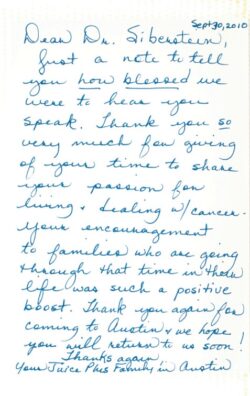 Sept 30, 2010
Dear Dr. Siberstein,
Just a note to tell
you how blessed we
were to hear you
speak. Thank you so
very much for giving
of your time to share
your passion for
living & dealing w/cancer.
Your encouragement
to families who are going
through that time in their
life was such a positive
boost. Thank you again for
coming to Austin & we hope
you will return to us soon!
Thanks again,
Your Juice Plus Family in Austin